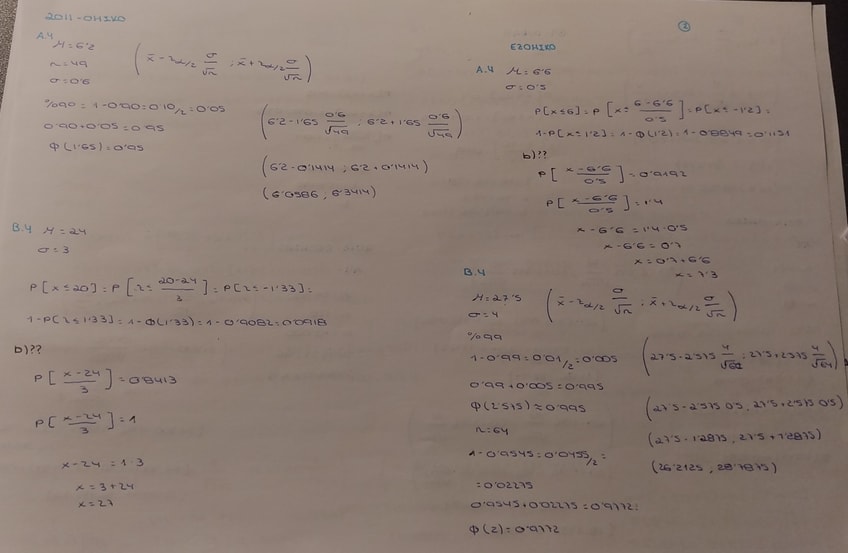 2011-OHIKO
A.4
μ = 6'2
n = 49
σ = 0'6
( x̄ - z α/2 σ/√n ; x̄ + z α/2 σ/√n )
%90 = 1-0'90 = 0'10/2 = 0'05
0'90+0'05 = 0'95
Φ(1'65) = 0'95
( 6'2-1'65 0'6/√49 ; 6'2+1'65 0'6/√49 )
(6'2-0'1414 ; 6'2+0'1414)
(6'0586 , 6'3414)
B.4 μ = 24
σ = 3
P[x≤20] = P[z≤ 20-24/3] = P[z≤-1'33] =
1-P[z≤1'33] = 1-Φ(1'33) = 1-0'9082 = 0'0918
b)??
P[ x-24/3 ] = 0'8413
P[ x-24/3 ] = 1
x-24 = 1·3
x = 3+24
x = 27
3
EZOHIKO
A.4 μ = 6'6
σ = 0'5
P[x≤6] = P[x≤ 6-6'6/0'5] = P[x≤-1'2] =
1-P[x≤1'2] = 1-Φ(1'2) = 1-0'8849 = 0'1151
b)??
P[ x-6'6/0'5 ] = 0'9192
P[ x-6'6/0'5 ] = 1'4
x-6'6 = 1'4·0'5
x-6'6 = 0'7
x = 0'7+6'6
x = 7'3
B.4
μ = 27'5
σ = 4
( x̄ - z α/2 σ/√n ; x̄ + z α/2 σ/√n )
%99
1-0'99 = 0'01/2 = 0'005
0'99+0'005 = 0'995
Φ(2'575) ≈ 0'995
n = 64
( 27'5-2'575 4/√64 ; 27'5+2'575 4/√64 )
(27'5-2'575 0'5, 27'5+2'575 0'5)
(27'5-1'2875, 27'5+1'2875)
(26'2125 , 28'7875)
1-0'9545 = 0'0455/2 =
= 0'02275
0'9545+0'02275 = 0'9772 =
Φ(2) = 0'9772